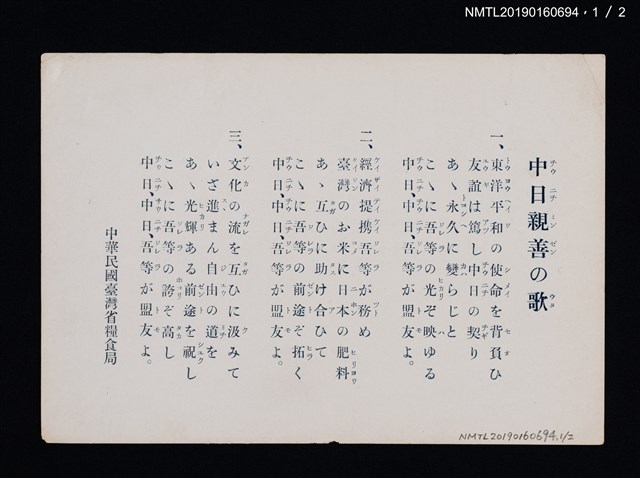 NMTL20190160694，1 / 2
中日親善の歌
一、東洋平和の使命を背負ひ
友誼は篤し中日の契り
あゝ永久に變らじと
こゝに吾等の光ぞ映ゆる
中日、中日、吾等が盟友よ。
二、經濟提携吾等が務め
臺灣のお米に日本の肥料
あゝ互ひに助け合ひて
こゝに吾等の前途ぞ拓く
中日、中日、吾等が盟友よ。
三、文化の流を互ひに汲みて
いざ進まん自由の道を
あゝ光輝ある前途を祝し
こゝに吾等の誇ぞ高し
中日、中日、吾等が盟友よ。
中華民國臺灣省糧食局
NMTL20190160694.1/2